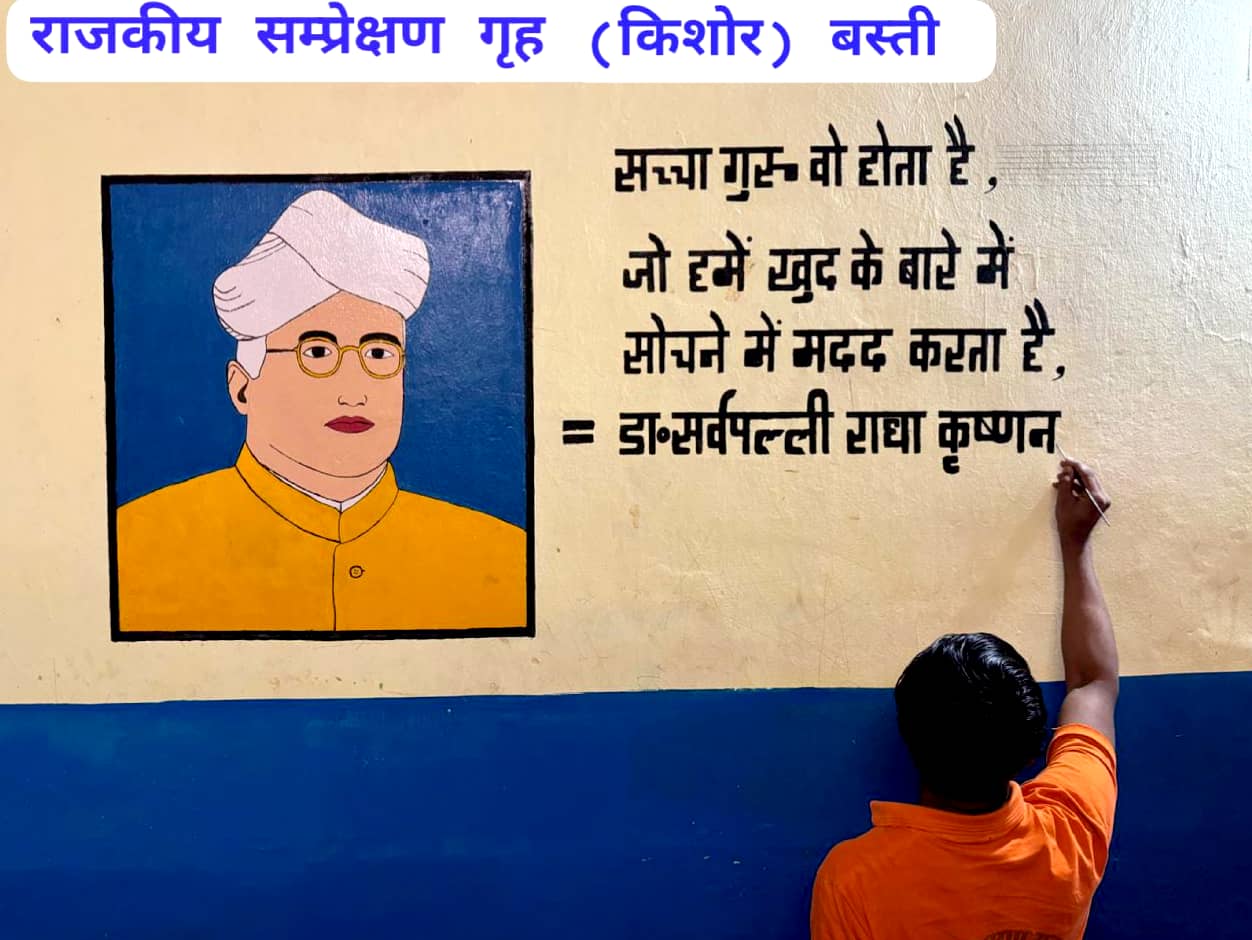 राजकीय सम्प्रेक्षण गृह (किशोर) बस्ती
सच्चा गुरु वो होता है,
जो हमें खुद के बारे में
सोचने में मदद करता है,
= डा॰सर्वपल्ली राधा कृष्णन